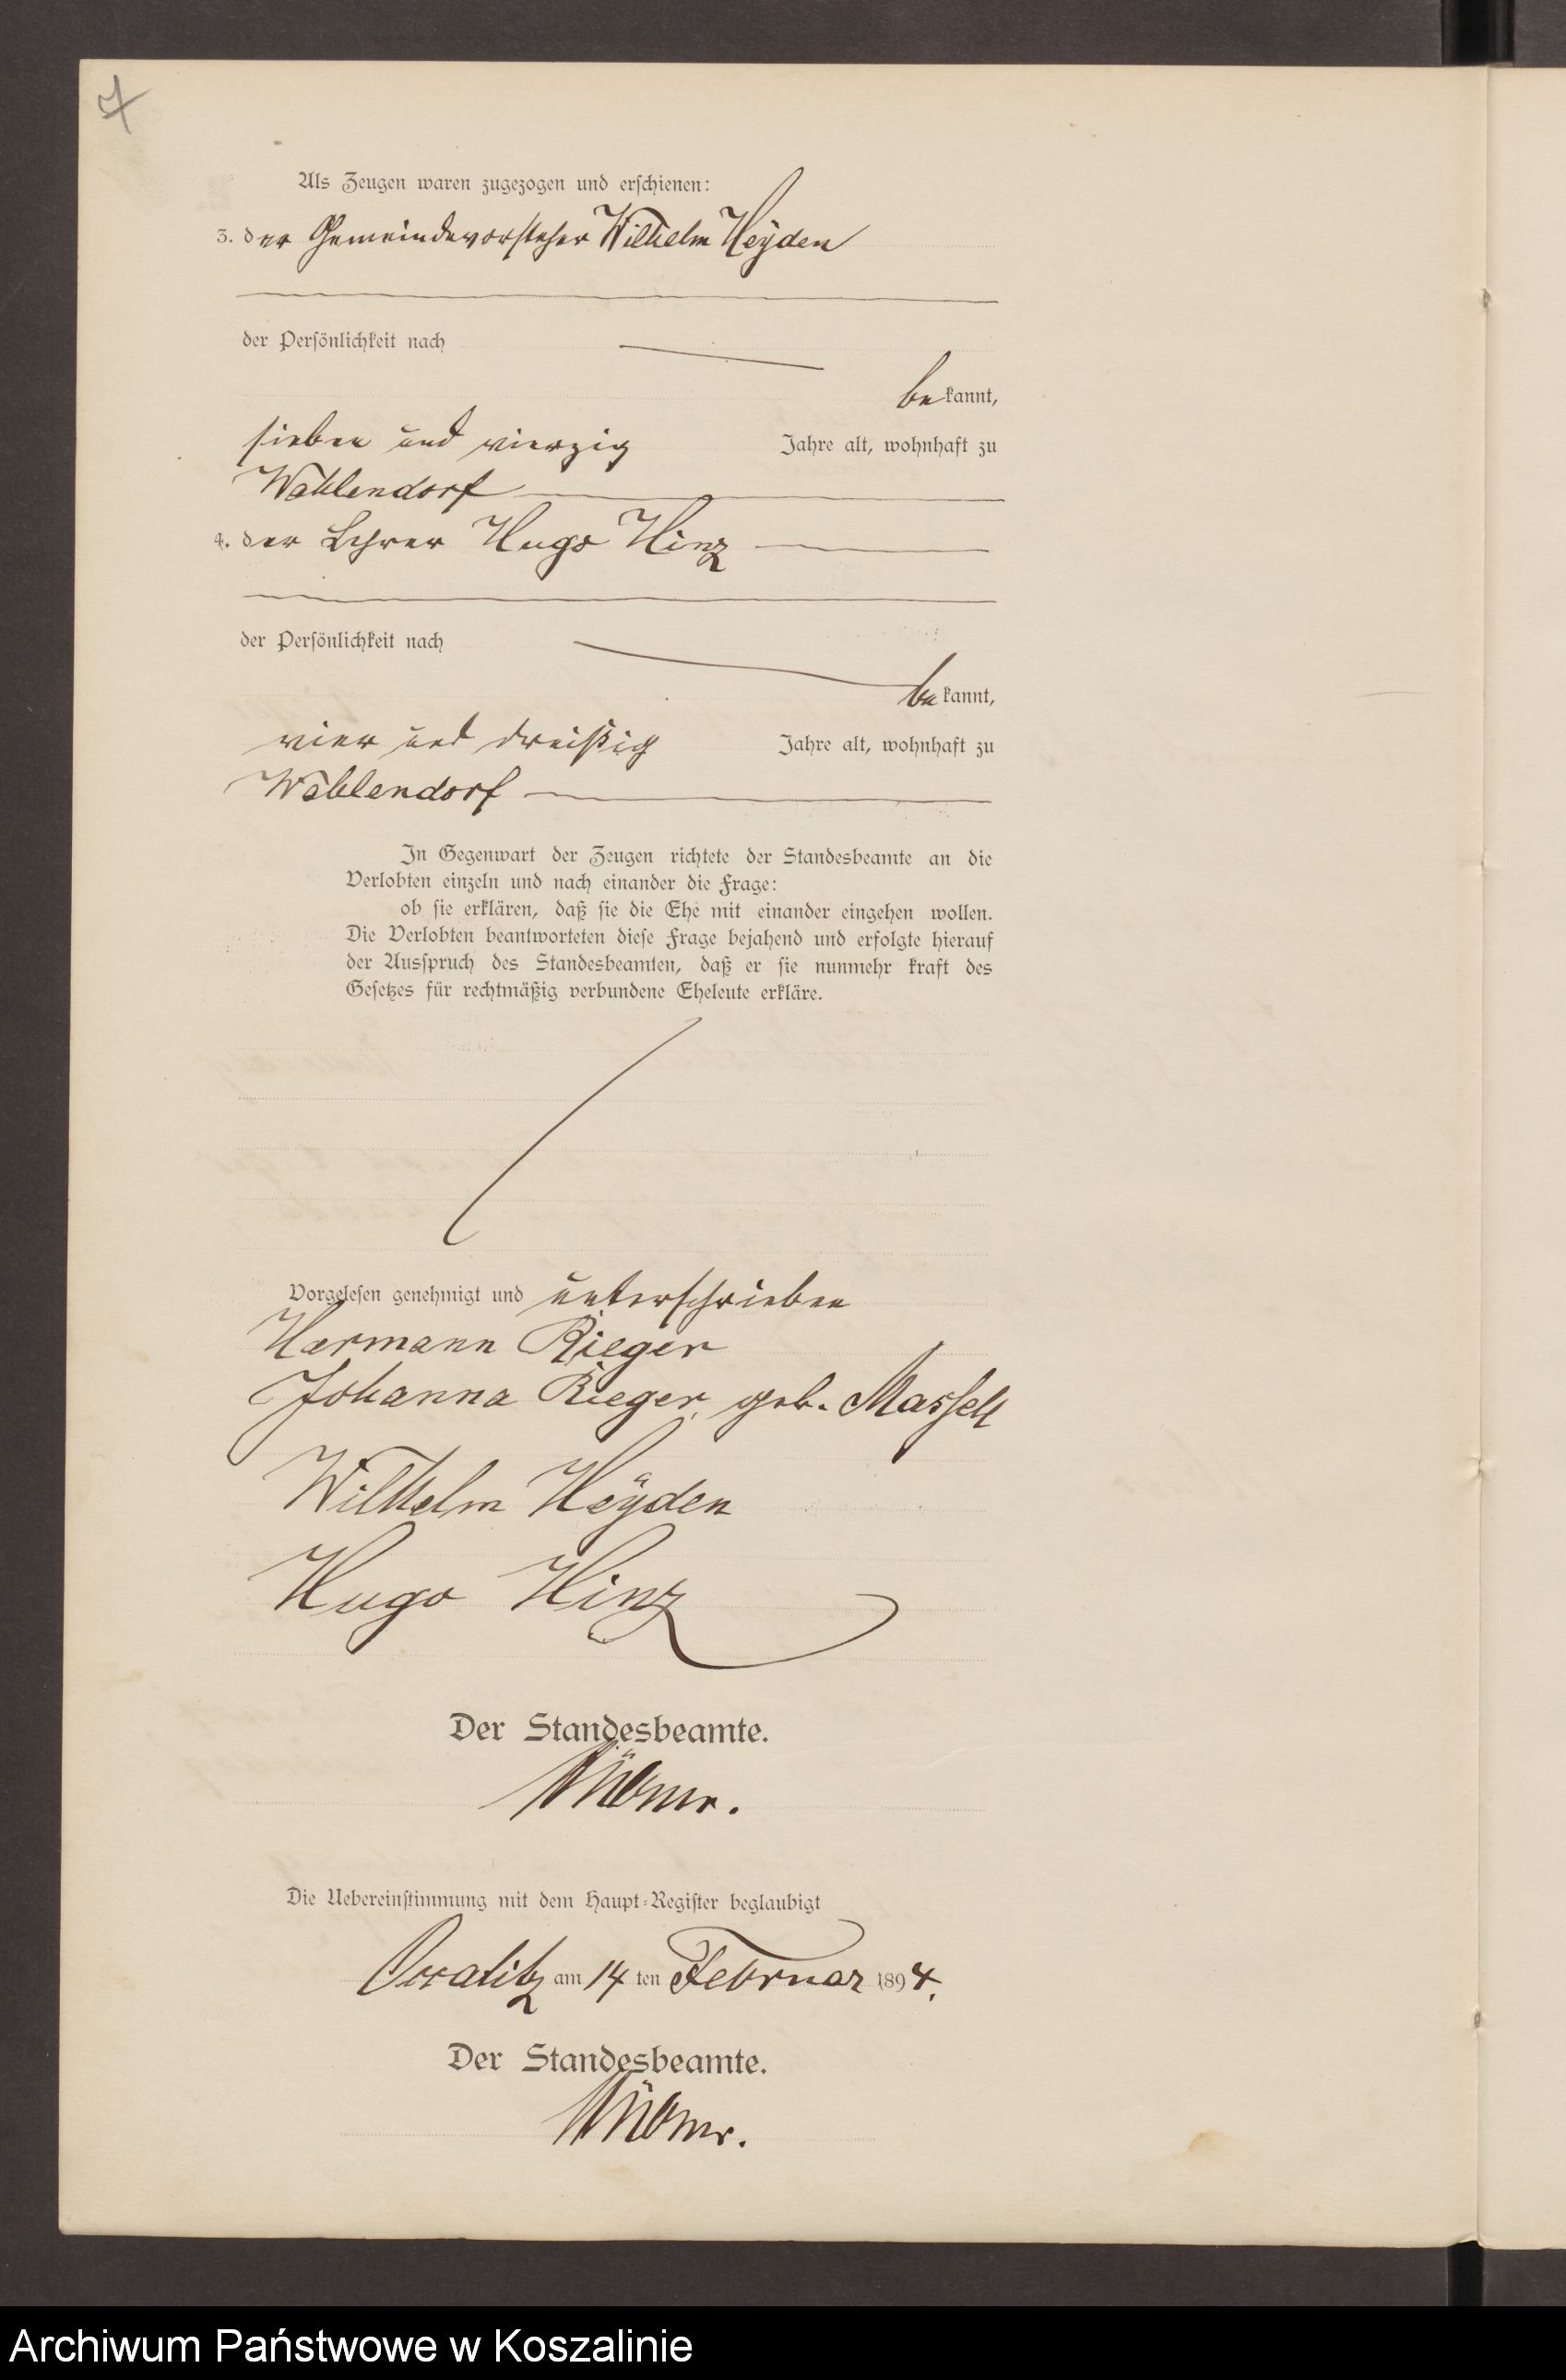 Als Zeugen waren zugezogen und erschienen:
3. der Gemeindevorsteher Wilhelm Heyden
der Persönlichkeit nach
bekannt,
sieben und vierzig Jahre alt, wohnhaft zu
Wahlendorf
4. der Lehrer Hugo Hinz
der Persönlichkeit nach
bekannt,
vier und dreißig Jahre alt, wohnhaft zu
Wahlendorf
In Gegenwart der Zeugen richtete der Standesbeamte an die
Verlobten einzeln und nach einander die Frage:
ob sie erklären, daß sie die Ehe mit einander eingehen wollen.
Die Verlobten beantworteten diese Frage bejahend und erfolgte hierauf
der Ausspruch des Standesbeamten, daß er sie nunmehr kraft des
Gesetzes für rechtmäßig verbundene Eheleute erkläre.
Vorgelesen genehmigt und unterschrieben
Hermann Rieger
Johanna Rieger geb. Massell
Wilhelm Heÿden
Hugo Hinz
Der Standesbeamte.
Die Uebereinstimmung mit dem Haupt-Register beglaubigt
am 14 ten Februar 1894.
Der Standesbeamte.
Archiwum Państwowe w Koszalinie